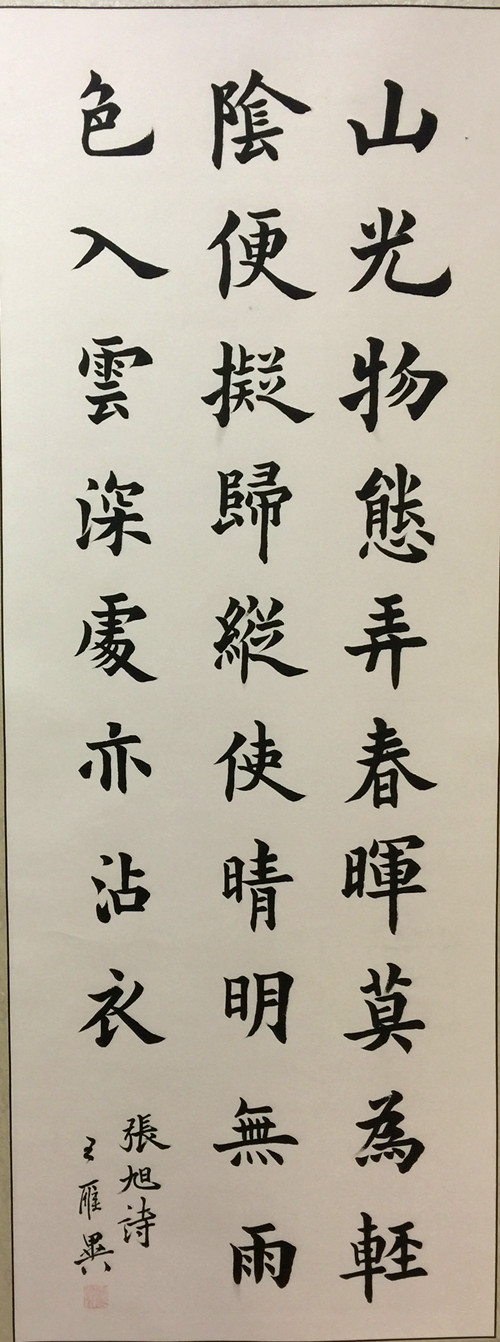 山光物態弄春暉莫為輕
陰便擬歸縱使晴明無雨
色入雲深處亦沾衣
張旭詩
王雁